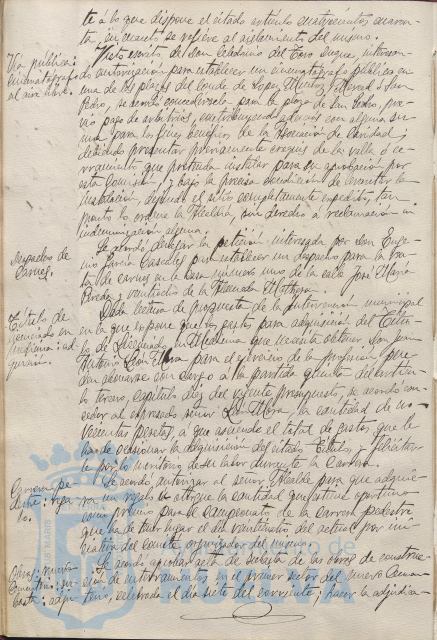 te á lo que dispone el citado artículo cuatrocientos cuaren-
ta, en cuanto se refiere al aislamiento del mismo.
Vía pública:
Cinematógrafo
al aire libre.
Visto escrito, de don Celedonio del Toro Duque, interesan-
do autorización para establecer un cinematógrafo público en
una de las plazas del Conde de López Muñoz, Villarreal o San
Pedro, se acordó concedérselo para la plaza de San Pedro, pre-
vio pago de arbitrios, contribuyendo además con alguna su-
ma para los fines benéficos de la Asociación de Caridad;
debiendo presentar previamente croquis de la valla ó ce-
rramiento que pretenda instalar para su aprobación por
esta Comisión; y bajo la precisa condición de levantar la
instalación, dejando el sitio completamente expedito, tan
pronto lo ordene la Alcaldía, sin derecho á reclamación ni
indemnización alguna.
Despachos de
Carnes.
Se acordó denegar la petición interesada por don Euge-
nio García Casales para establecer un despacho para la ven-
ta de carnes en la casa número uno de la calle José María
Pereda y ventidós de la Alameda Mothern.
Título de
Licenciado en
Medicina: ad-
quisición.
Dada lectura de propuesta de la Intervención municipal
en la que expone que los gastos para adquisición del Títu-
lo de Licenciado en Medicina que necesita obtener don Juan
Antonio León Mora para el ejercicio de la profesión pue-
den abonarse con cargo a la partida quinta del artícu-
lo tercero, capítulo diez del vigente presupuesto, se acordó con-
ceder al expresado señor León Mora, la cantidad de no-
vecientas pesetas, á que asciende el total de gastos, que le
ha de ocasionar la adquisición del citado Título, y felicitar-
le por lo meritorio de su labor durante la carrera.
Carrera pe-
destre: rega-
lo.
Se acordó autorizar al señor Alcalde para que adquie-
ra un regalo ú otorgue la cantidad que estime oportuna
como premio para el campeonato de la carrera pedestre
que ha de tener lugar el día veintinueve del actual por ini-
ciativa del comité organizador del mismo.
Obras: nuevo
Cementerio: su-
basta: adju-
Se acordó aprobar acta de subasta de las obras de construc-
ción de enterramientos en el primer sector del nuevo Cemen-
terio, celebrada el día siete del corriente; hacer la adjudica-
Ayuntamiento de
HUELVA